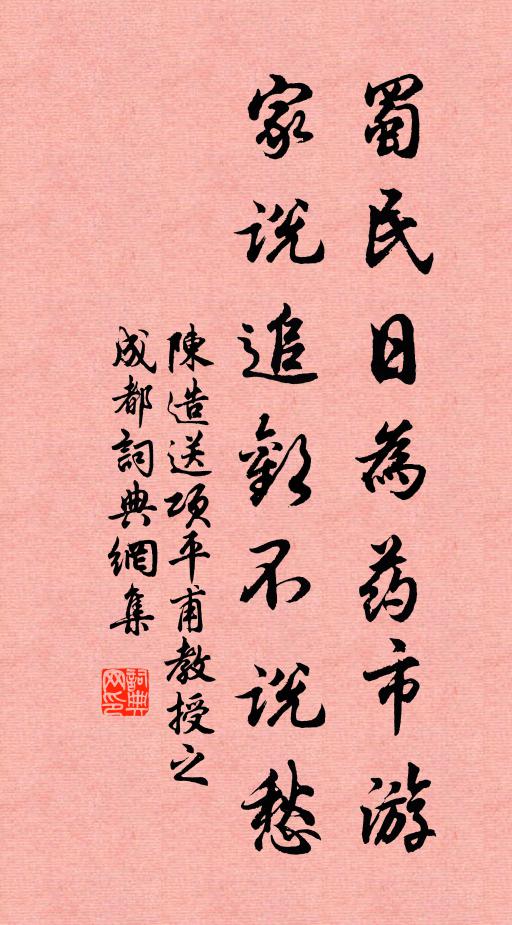 蜀民日為药市游
家说追歡不说愁
陳造送項平甫教授之
成都詞典網集
詞典网印